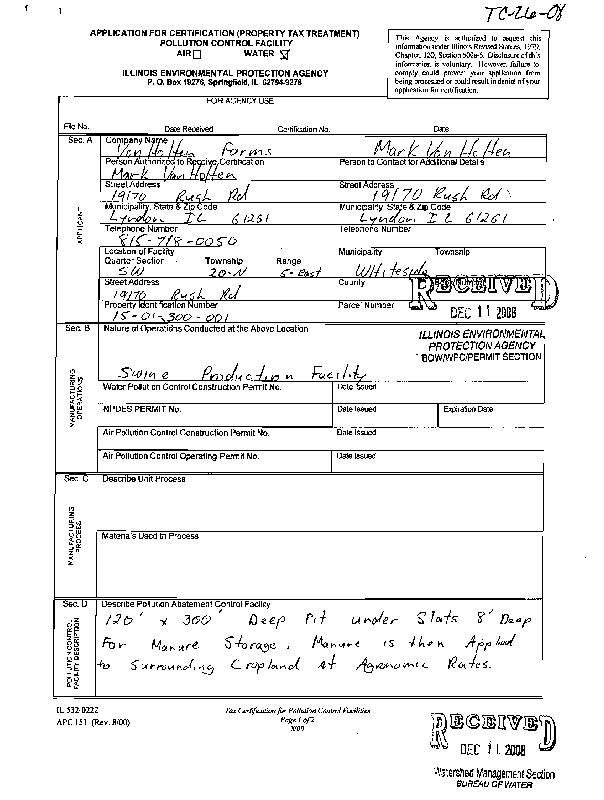 TC-26-08
APPLICATION FOR CERTIFICATION (PROPERTY TAX TREATMENT)
POLLUTION CONTROL FACILITY
AIR WATER
ILLINOIS ENVIRONMENTAL PROTECTION AGENCY
P. O. Box 19276, Springfield, IL 62794-9276
This Agency is authorized to request this
information under Illinois Revised Statutes, 1979,
Chapter 120, Section 502a-5. Disclosure of this
information is voluntary. However, failure to
comply could prevent your application from
being processed or could result in denial of your
application for certification.
FOR AGENCY USE
File No. Date Received Certification No. Date
Sec. A
APPLICANT
Company Name
Von Holten Farms
Mark Von Holten
Person Authorized to Receive Certification
Person to Contact for Additional Details
Mark Von Holten
Street Address
Street Address
19170 Rugh Rd
19170 Rugh Rd
Municipality, State & Zip Code
Municipality, State & Zip Code
Lyndon IL 61261
Lyndon IL 61261
Telephone Number
Telephone Number
815-718-0050
Location of Facility
Municipality Township
Quarter Section Township Range
SW 20-N 5-East
Whiteside
Street Address
County
19170 Rugh Rd
Property Identification Number
Parcel Number
15-01-300-001
RECEIVED
DEC 11 2008
ILLINOIS ENVIRONMENTAL
PROTECTION AGENCY
BOW/WPC/PERMIT SECTION
Sec. B
MANUFACTURING
OPERATIONS
Nature of Operations Conducted at the Above Location
Swine Production Facility
Water Pollution Control Construction Permit No. Date Issued
NPDES PERMIT No. Date Issued Expiration Date
Air Pollution Control Construction Permit No. Date Issued
Air Pollution Control Operating Permit No. Date Issued
Sec. C
MANUFACTURING
PROCESS
Describe Unit Process
Materials Used in Process
Sec. D
POLLUTION CONTROL
FACILITY DESCRIPTION
Describe Pollution Abatement Control Facility
120' x 300' Deep Pit under Slats 8' Deep
For Manure Storage. Manure is then Applied
to Surrounding Cropland at Agronomic Rates.
IL 532-0222
APC 151 (Rev. 8/00)
Tax Certification for Pollution Control Facilities
Page 1 of 2
RECEIVED
DEC 11 2008
Watershed Management Section
BUREAU OF WATER